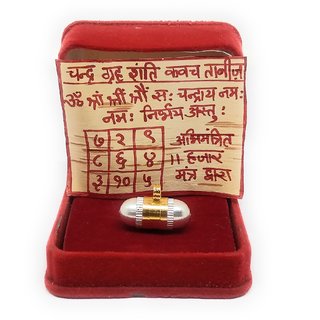 चन्द्र ग्रह शांति कवच ताबीज
ॐ श्रां श्रीं श्रौं सः चन्द्राय नमः
नमः निर्भय अस्तु :
७ २ ९ अभिमंत्रित
८ ६ ४ ११ हजार
३ १० ५ मंत्र द्वारा